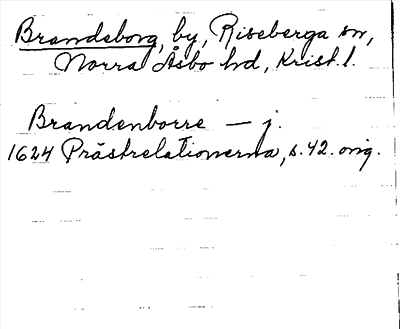 Brandsborg, by, Riseberga sn,
Norra Åsbo hd, Krist. l.
Brandenborre — j.
1624 Prästrelationerna, s. 42. orig.